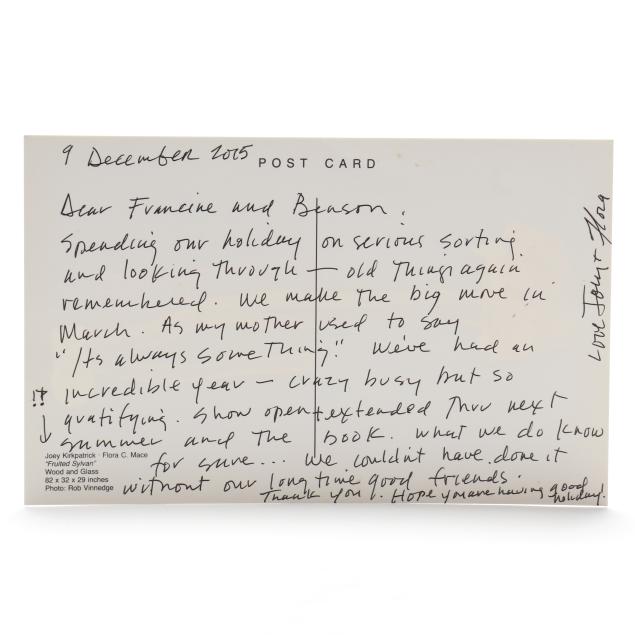 9 December 2015
POST CARD
Dear Francine and Benson,
Spending our holiday on serious sorting
and looking through — old things again
remembered. We make the big move in
March. As my mother used to say
"Its always something!" We've had an
incredible year — crazy busy but so
gratifying. Show open + extended thru next
summer and the book. What we do know
for sure... we couldn't have done it
without our longtime good friends.
Thank you. Hope you are having good
holiday!
!!
Joey Kirkpatrick · Flora C. Mace
"Fruited Sylvan"
Wood and Glass
82 x 32 x 29 inches
Photo: Rob Vinnedge
Love Joey + Flora